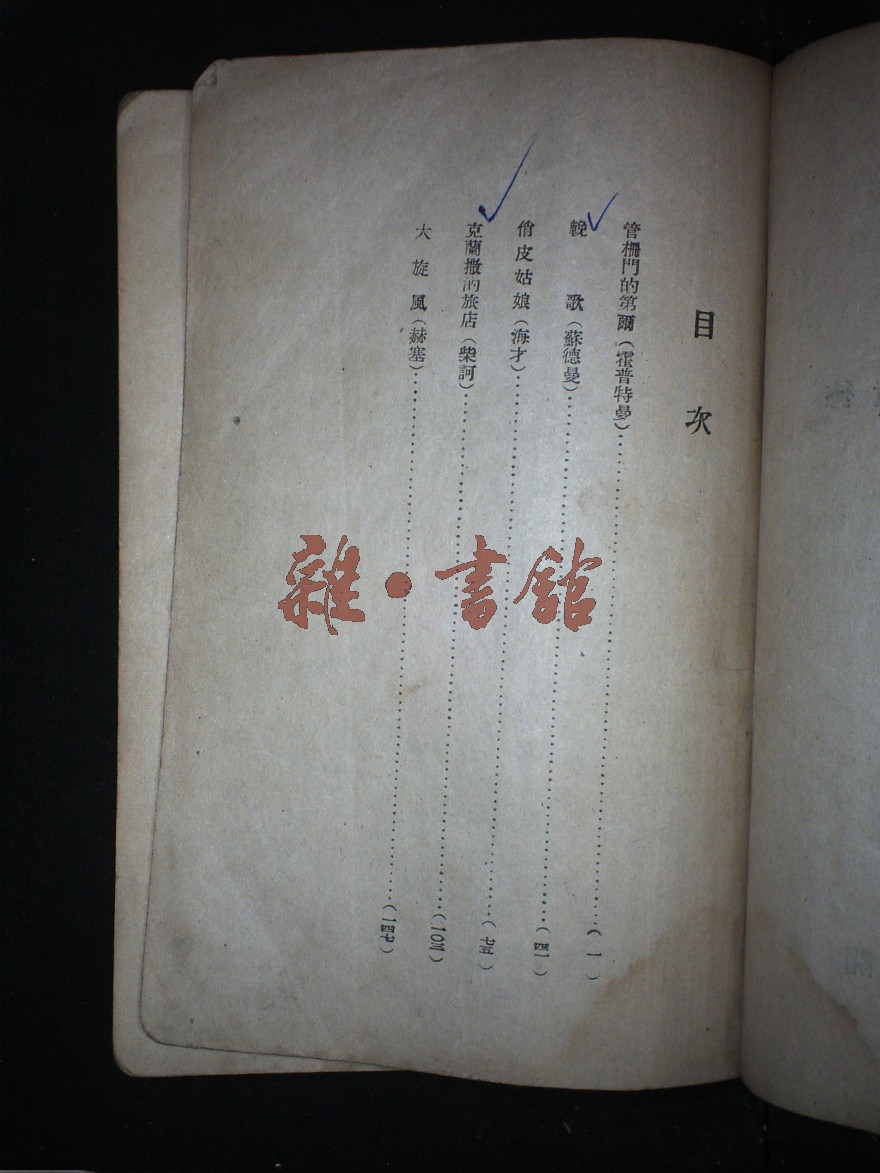 目次
管柵門的第爾(霍普特曼)…………(一)
輓歌(蘇德曼)…………(四一)
俏皮姑娘(海才)…………(七五)
克蘭撒的旅店(柴訶)…………(一〇三)
大旋風(赫塞)…………(一四七)
雜·書館